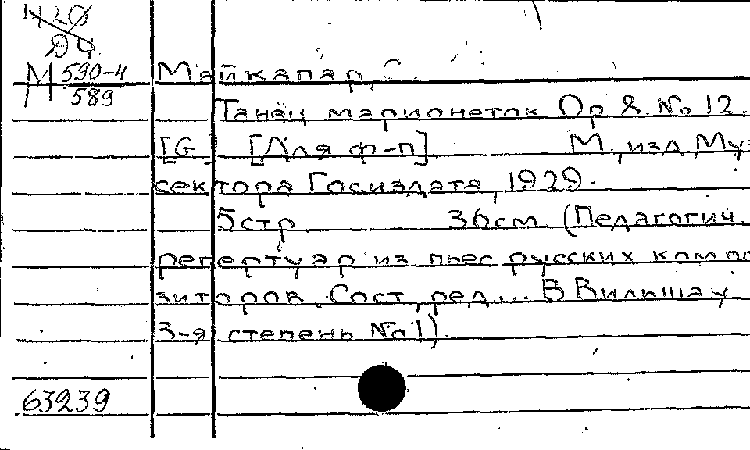 М 590-4
589
Майкапар, С.
Танец марионеток Op 8. No 12.
[G] [Для ф-п] М., изд. Муз
сектора Госиздата, 1929.
5 стр 36 см. (Педагогич.
репертуар из пьес русских компо
зиторов. Сост., ред... В Вильшау
3-я степень No 1).
63239